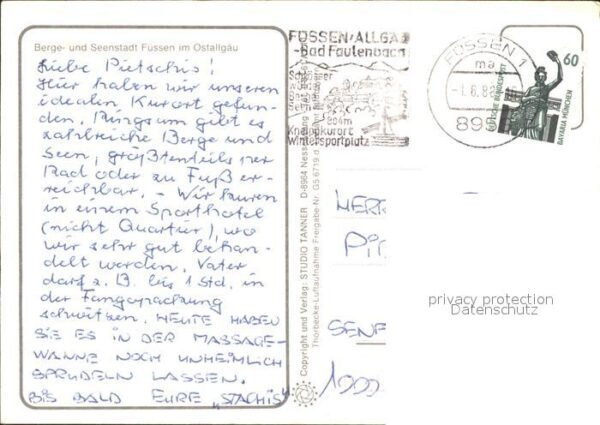 Berge- und Seenstadt Füssen im Ostallgäu
Liebe Pietschis!
Hier haben wir unseren
idealen Kurort gefun-
den. Ringsum gibt es
zahlreiche Berge und
Seen, größtenteils per
Rad oder zu Fuß er-
reichbar. - Wir kuren
in einem Sporthotel
(nicht Quartier), wo
wir sehr gut behan-
delt werden. Vater
darf z. B. bis 1 Std. in
der Fangopackung
schwitzen. HEUTE HABEN
SIE ES IN DER MASSAGE-
WANNE NOCH UNHEIMLICH
SPRUDELN LASSEN.
BIS BALD EURE "STACHIS"
Copyright und Verlag: STUDIO TANNER D-8964 Nesse
Thorbecke-Luftaufnahme Freigabe-Nr. G5/6719 d.
FÜSSEN/ALLGÄ
-Bad Faulenbach
804m
Kneippkurort
Wintersportplatz
FÜSSEN 1
ma
-1.6.8
89
60
DEUTSCHE BUNDESPOST
BAVARIA MÜNCHEN
HERR
SENF
1000
privacy protection
Datenschutz